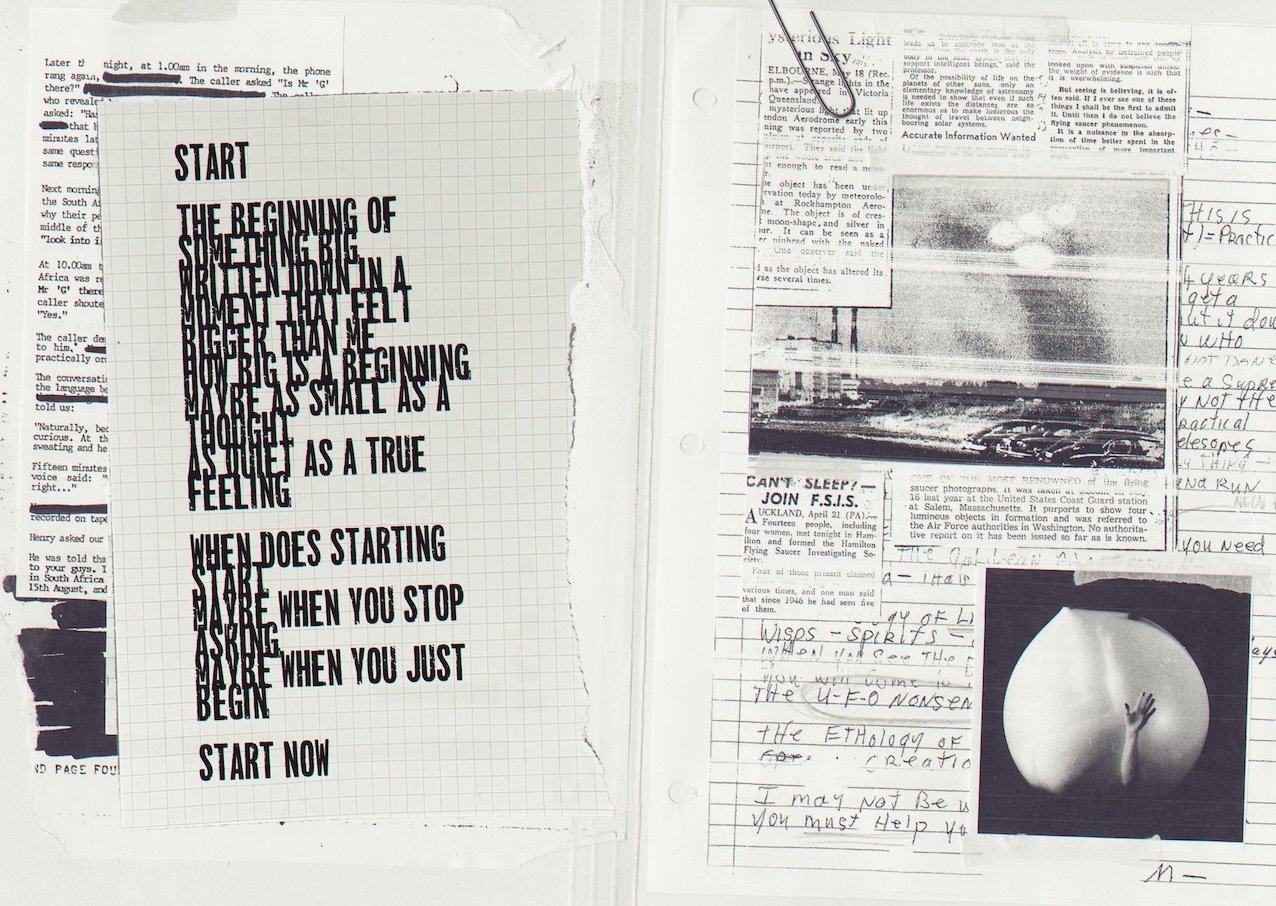 Later night, at 1.00am in the morning, the phone
rang again, The caller asked "Is Mr 'G'
there?"
who reveale
asked: "Has
that h
minutes lat
same quest
same respo
Next mornin
the South A
why their pe
middle of th
"look into i
At 10.00am t
Africa was re
Mr 'G' there
caller shoute
"Yes."
The caller de
to him,
practically or
The conversatio
the language be
told us:
"Naturally, bec
curious. At th
sweating and he
Fifteen minutes
voice said: "
right..."
recorded on tape
Henry asked our
He was told tha
to your guys. I
in South Africa
15th August, and
ND PAGE FOU
START
THE BEGINNING OF
SOMETHING BIG
WRITTEN DOWN IN A
MOMENT THAT FELT
BIGGER THAN ME
HOW BIG IS A BEGINNING
MAYBE AS SMALL AS A
THOUGHT
AS QUIET AS A TRUE
FEELING
WHEN DOES STARTING
START
MAYBE WHEN YOU STOP
ASKING
MAYBE WHEN YOU JUST
BEGIN
START NOW
ysterious Light
in Sky
ELBOURNE, May 18 (Rec.
p.m.).—Strange lights in the
have appeared in Victoria
Queensland.
mysterious light that lit up
ndon Aerodrome early this
ning was reported by two
airport. They said the light
the whole area and
ht enough to read a news-
he object has been under
rvation today by meteorolo-
s at Rockhampton Aero-
me. The object is of cres-
moon-shape, and silver in
our. It can be seen as a
er pinhead with the naked
One observer said the
d as the object has altered its
rse several times.
leads us to conclude that at the
body in the solar system
support intelligent beings," said the
professor.
Of the possibility of life on the
planets of other suns, only an
elementary knowledge of astronomy
is needed to show that even if such
life exists the distances are so
enormous as to make ludicrous the
thought of travel between neigh-
bouring solar systems.
Accurate Information Wanted
tions. Analysis by untrained people
looked upon with suspicion unless
the weight of evidence is such that
it is overwhelming.
But seeing is believing, it is of-
ten said. If I ever see one of these
things I shall be the first to admit
it. Until then I do not believe the
flying saucer phenomenon.
It is a nuisance in the absorp-
tion of time better spent in the
prosecution of more important
CAN'T SLEEP?—
JOIN F.S.I.S.
AUCKLAND, April 21 (PA).—
Fourteen people, including
four women, met tonight in Ham-
ilton and formed the Hamilton
Flying Saucer Investigating So-
ciety.
Four of those present claimed
various times, and one man said
that since 1946 he had seen five
of them.
ONE OF THE MOST RENOWNED of the flying
saucer photographs. It was taken at 9.35am on July
16 last year at the United States Coast Guard station
at Salem, Massachusetts. It purports to show four
luminous objects in formation and was referred to
the Air Force authorities in Washington. No authorita-
tive report on it has been issued so far as is known.
THIS IS
t)=Practic
4 years
get a
ut it dow
WHO
NOT DAN
e a Supre
y Not the
practical
elesopes
THING —
and RUN
NOW
you Need
THE GALILEAN
a— Thais
gy of Li
Wisps — Spirits —
When you see the
you will come to
THE U-F-O NONSEN
the ETHology of
creatio
I may Not Be
you must Help yo
M—